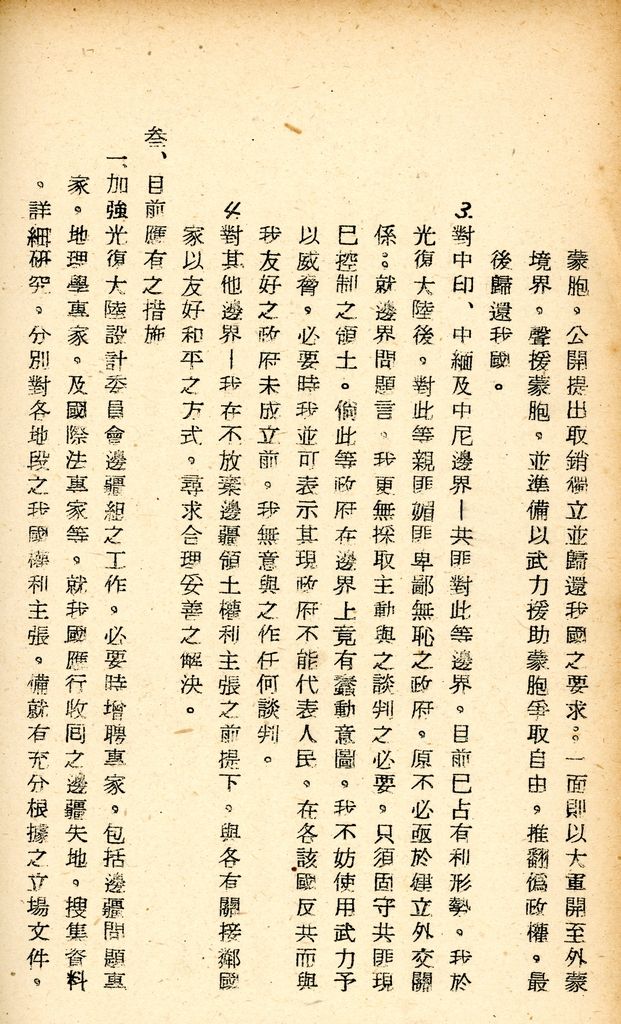 蒙胞，公開提出取銷獨立並歸還我國之要求。一面則以大軍開至外蒙
境界，聲援蒙胞，並準備以武力援助蒙胞爭取自由，推翻僞政權，最
後歸還我國。
3.對中印、中緬及中尼邊界—共匪對此等邊界，目前已占有利形勢。我於
光復大陸後，對此等親匪媚匪卑鄙無恥之政府，原不必亟於建立外交關
係。就邊界問題言，我更無採取主動與之談判之必要，只須固守共匪現
已控制之領土。倘此等政府在邊界上竟有蠢動意圖，我不妨使用武力予
以威脅，必要時我並可表示其現政府不能代表人民，在各該國反共而與
我友好之政府未成立前，我無意與之作任何談判。
4.對其他邊界—我在不放棄邊疆領土權利主張之前提下，與各有關接鄰國
家以友好和平之方式，尋求合理妥善之解決。
叁、目前應有之措施
一、加強光復大陸設計委員會邊疆組之工作，必要時增聘專家，包括邊疆問題專
家，地理學專家，及國際法專家等，就我國應行收回之邊疆失地，搜集資料
，詳細研究，分別對各地段之我國權利主張，備就有充分根據之立場文件。